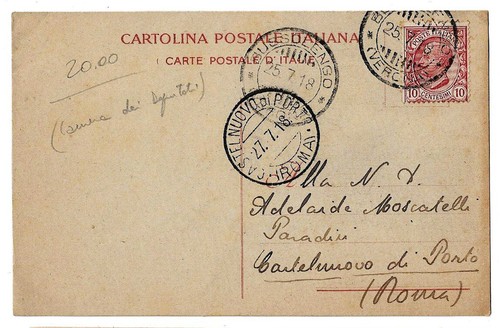 CARTOLINA POSTALE ITALIANA
(CARTE POSTALE D'ITALIE)
20.00
(Camera dei Deputati)
BUSSOLENGO
25.7.18
25.
(VERO
POSTE ITALIANE
10 CENTESIMI 10
CASTELNUOVO DI PORTO
27.7.18
(ROMA)
Alla N. D.
Adelaide Moscatelli
Paradisi
Castelnuovo di Porto
(Roma)